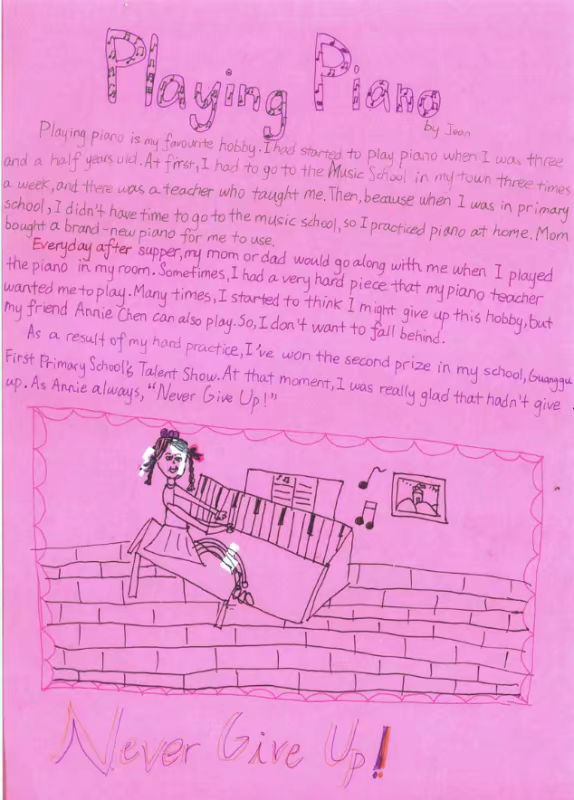 Playing Piano
by Jean
Playing piano is my favourite hobby. I had started to play piano when I was three
and a half years old. At first, I had to go to the Music School in my town three times
a week, and there was a teacher who taught me. Then, because when I was in primary
school, I didn't have time to go to the music school, so I practiced piano at home. Mom
bought a brand-new piano for me to use.
Everyday after supper, my mom or dad would go along with me when I played
the piano in my room. Sometimes, I had a very hard piece that my piano teacher
wanted me to play. Many times, I started to think I might give up this hobby, but
my friend Annie Chen can also play. So, I don't want to fall behind.
As a result of my hard practice, I've won the second prize in my school, Guanggu
First Primary School's Talent Show. At that moment, I was really glad that hadn't give
up. As Annie always, "Never Give Up!"
Never Give Up!